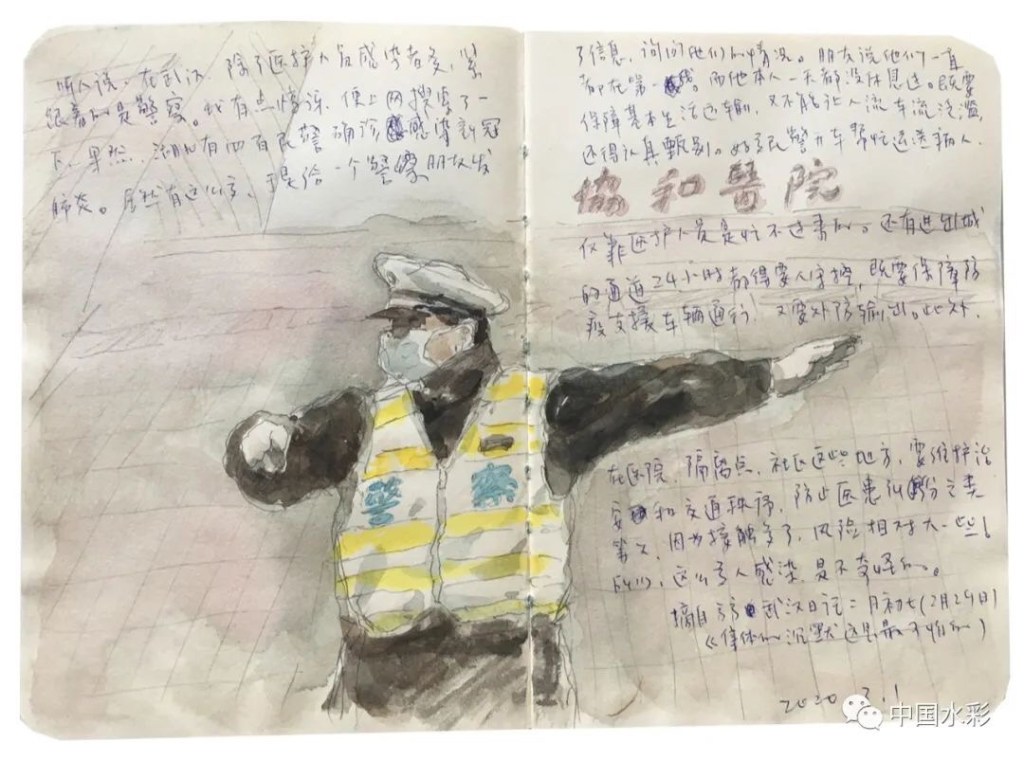 听人说，在武汉，除了医护人员感染者多，紧
跟着的是警察。我有点惊讶，便上网搜索了一
下，果然，湖北有四百民警确诊感染新冠
肺炎。居然有这么多，于是给一个警察朋友发
了信息，询问他们的情况。朋友说他们一直
都在第一线。而他本人一天都没休息过。既要
保障基本生活运输，又不能让人流车流泛滥，
还得认真甄别。好多民警开车帮忙运送病人，
協和醫院
仅靠医护人员是忙不过来的。还有进出城
的通道24小时都得要人守控，既要保障防
疫支援车辆通行，又要外防输出。此外，
在医院、隔离点、社区这些地方，要维护治
安和交通秩序，防止医患纠纷之类
等。因为接触多了，风险相对大一些。
所以，这么多人感染，是不奇怪的。
摘自方 武汉日记二月初七(2月29日)
《集体的沉默，这是最可怕的》
2020.3.1
警 察
中国水彩